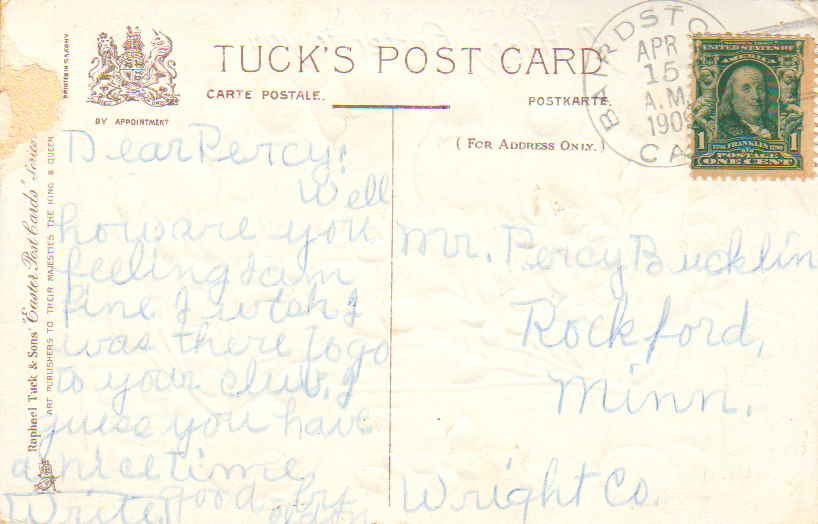 TUCK'S POST CARD
CARTE POSTALE.
POSTKARTE.
BY APPOINTMENT
(FOR ADDRESS ONLY.)
BARDSTO
APR
15
A.M.
1909
CA
UNITED STATES OF
AMERICA
1 FRANKLIN 1
POSTAGE
ONE CENT
Raphael Tuck & Sons' "Easter Post Cards" Series
ART PUBLISHERS TO THEIR MAJESTIES THE KING & QUEEN
PRINTED IN SAXONY
Dear Percy:
Well
how are you
feeling I am
fine I wish I
was there to go
to your club. I
guess you have
a nice time
Write good-by
Mr. Percy Bucklin
Rockford,
Minn.
Wright Co.